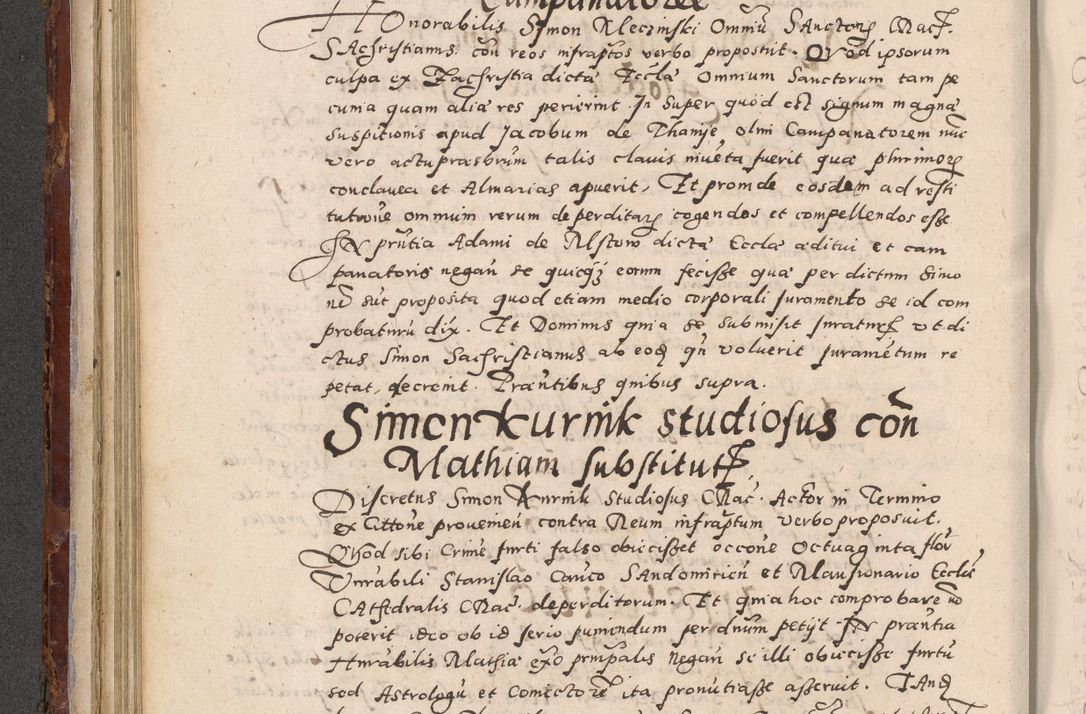 Campanatores
Honorabilis Simon Kleczinski Omniũ SAnctorꝝ CRac.
SAchristianus cõn reos infraptos verbo proposuit. Quod ipsorum
culpa ex Zachristia dictæ Eccľæ Omnium Sanctorum tam pe
cunia quam aliæ res perierint. In super quod est signum magnæ
suspitionis apud Jacobum de Thanije olim Campanatorem nũc
vero actu præsbrum talis clavis inuẽta fuerit quæ plurimorꝝ
conclauea et Almarias apuerit, Et proinde eosdem ad resti
tutione omnium rerum deperditarꝝ cogendos et compellendos esse
IN prñtia Adami de Ilstow dictæ Eccľæ æditui et cam
panatoris negañ se quicqꝫ eorum fecisse quæ per dictum Simo
nẽ sũt proposita quod etiam medio corporali Juramento se id com
probaturũ dix. Et Dominus quia se submisit iuraturũ vt di
ctus Simon Sachristianus ab eodꝫ qñ voluerit Juramẽtum re
petat, decreuit. Præntibus quibus supra.
Simon Kurnik studiosus cõn
Mathiam substitut
Discretus Simon Kurnik Studiosus CRac. Actor in Termino
ex Cittone proueñien contra Reum infraptum verbo proposuit.
Quod sibi Crimẽ furti falso obiecisset occone Octuaginta flor
Vnrabili Stanislao Canco SAndomirień et Mansionario Eccľæ
CAthedralis CRac. deperditorum. Et quia hoc comprobare nõ
poterit ideo ob id serio puniendum per dnum petijt. IN præntia
Hnrabilis Mathiæ exo prñpalis Negañ se illi obiecisse furtũ
sed Astrologũ et Coniectorẽ ita pronũtiasse asseruit. TAndꝫ